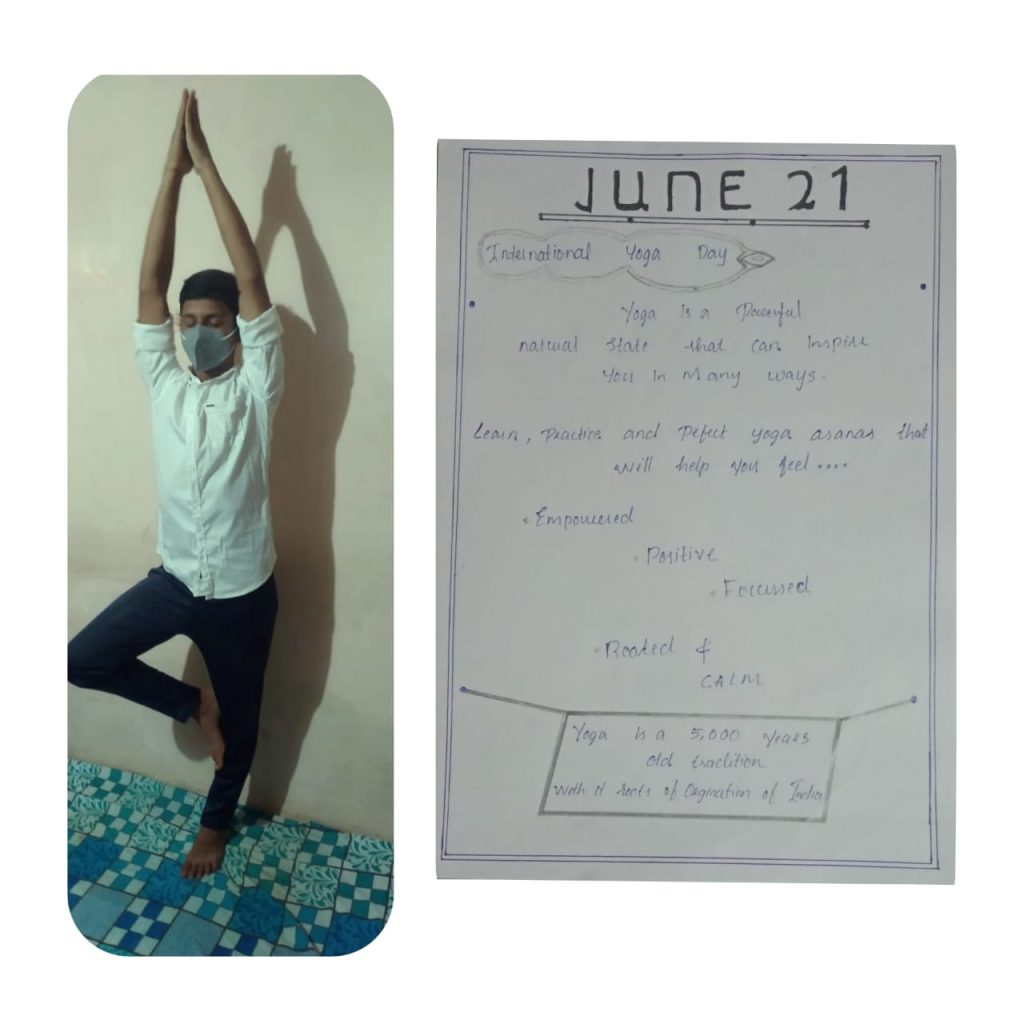 JUNE 21
International Yoga Day
Yoga Is a Powerful
natural State that can Inspire
You In Many ways.
Learn, Practice and Pefect yoga asanas that
will help you feel....
• Empowered
• Positive
• Focussed
• Rooted &
CALM
Yoga Is a 5,000 years
old tradition
with it roots of Orgination of India